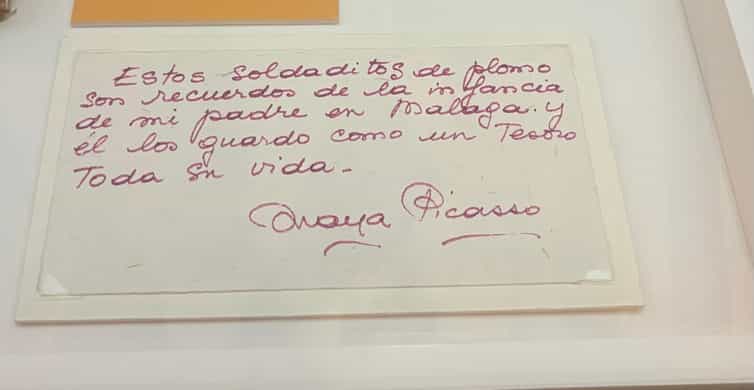 Estos soldaditos de plomo
son recuerdos de la infancia
de mi padre en Malaga. y
él los guardo como un Tesoro
Toda su vida.
Maya Picasso